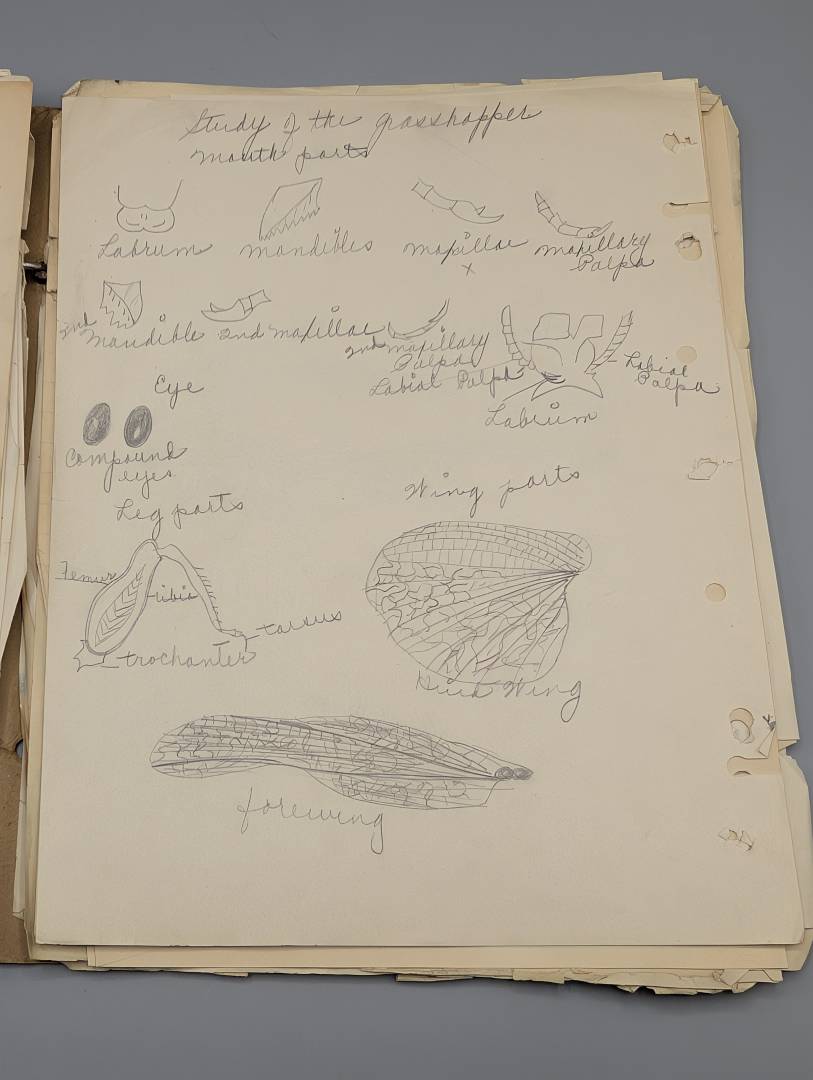 Study of the grasshopper
mouth parts
Labrum
mandibles
maxillae
x
maxillary
Palpa
2nd
mandible
2nd maxillae
2nd maxillary
Palpa
Labial Palpa
Labial
Palpa
Labium
Eye
Compound
eyes
Leg parts
Wing parts
Femur
tibia
tarsus
trochanter
Hind Wing
forewing